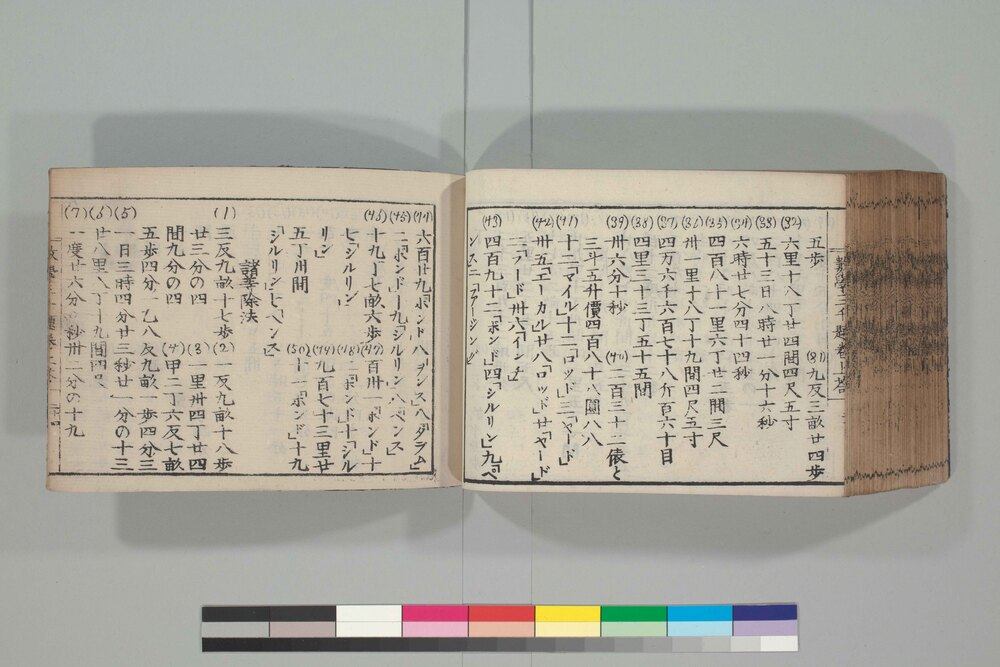 五歩 (31)九反三畝廿四歩
(32)六里十八丁廿四間四尺五寸
(33)五十三日八時廿一分十六秒
(34)六時廿七分四十四秒
(35)四百八十一里六丁廿二間三尺
(36)卅一里十八丁十九間四尺五寸
(37)四万六千六百七十八斤百六十目
(38)四里三十三丁五十五間
(39)卅六分十秒 (40)二百三十二俵と
三斗五升價四百八十八圓八八
(41)十二「マイル」十二「ロッド」三「ヤード」
(42)卅五「エーカル」廿八「ロッド」廿「ヤード」
二「フード」卅六「インチ」
(43)四百九十二「ポンド」四「シルリン」九「ペ
ンス」二「フーシング」
(44)六百廿九「ポンド」八「ヲンス」八「ダラム」
(45)二「ポンド」十九「シルリン」八「ペンス」
(46)十九丁七畝六歩 (47)百卅一「ポンド」十
七「シルリン」 (48)二「ポンド」十「シル
リン」 (49)九百七十三里廿
五丁卅間 (50)十一「ポンド」十九
「シルリン」七「ペンス」
諸等除法
(1)三反九畝十七歩 (2)一反九畝十八歩
廿三分の四 (3)一里卅四丁廿四
間九分の四 (4)甲二丁六反七畝
五歩四分二 乙八反九畝一歩四分三
(5)一日三時四分廿三秒廿一分の十三
(6)廿八里八丁十九間四尺
(7)一度廿六分 秒卅二分の十九